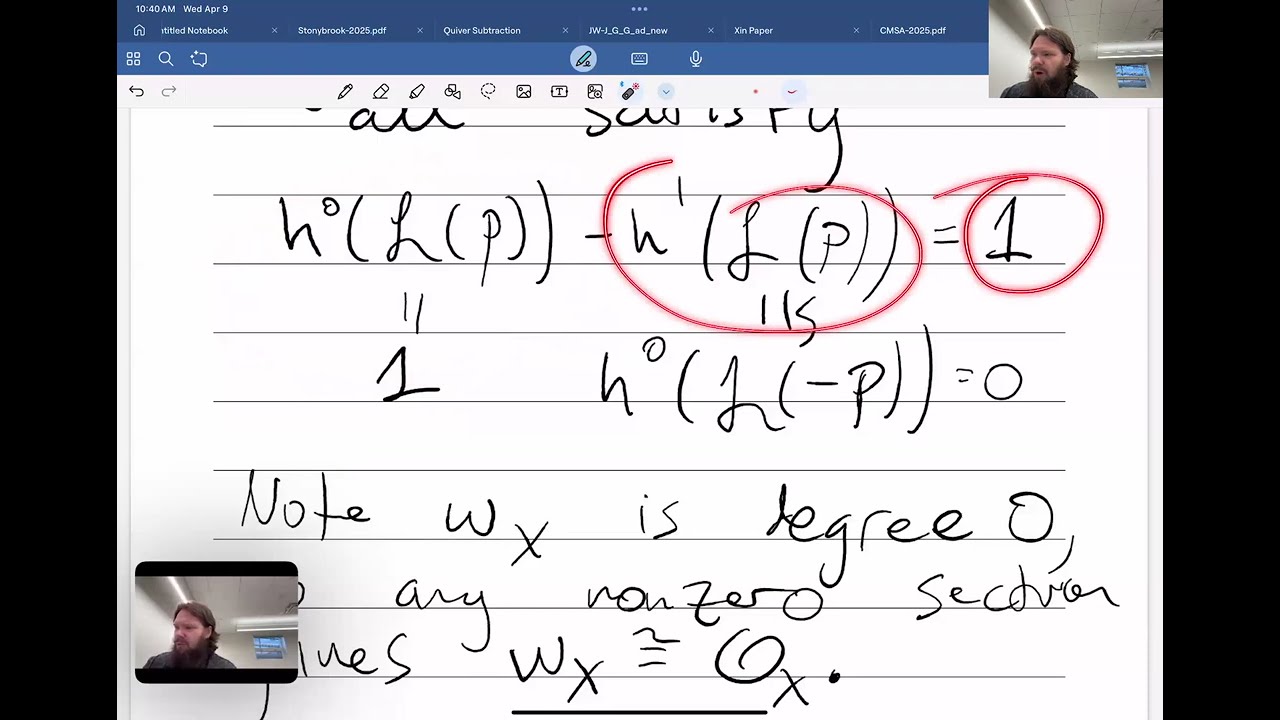 10:40 AM Wed Apr 9
ntitled Notebook
Stonybrook-2025.pdf
Quiver Subtraction
JW-J_G_G_ad_new
Xin Paper
CMSA-2025.pdf
all satisfy
h⁰(ℒ(p)) - h¹(ℒ(p)) = 1
|| ||s
1 h⁰(ℒ(-p)) = 0
Note ω_X is degree 0,
any nonzero section
ω_X ≅ O_X.